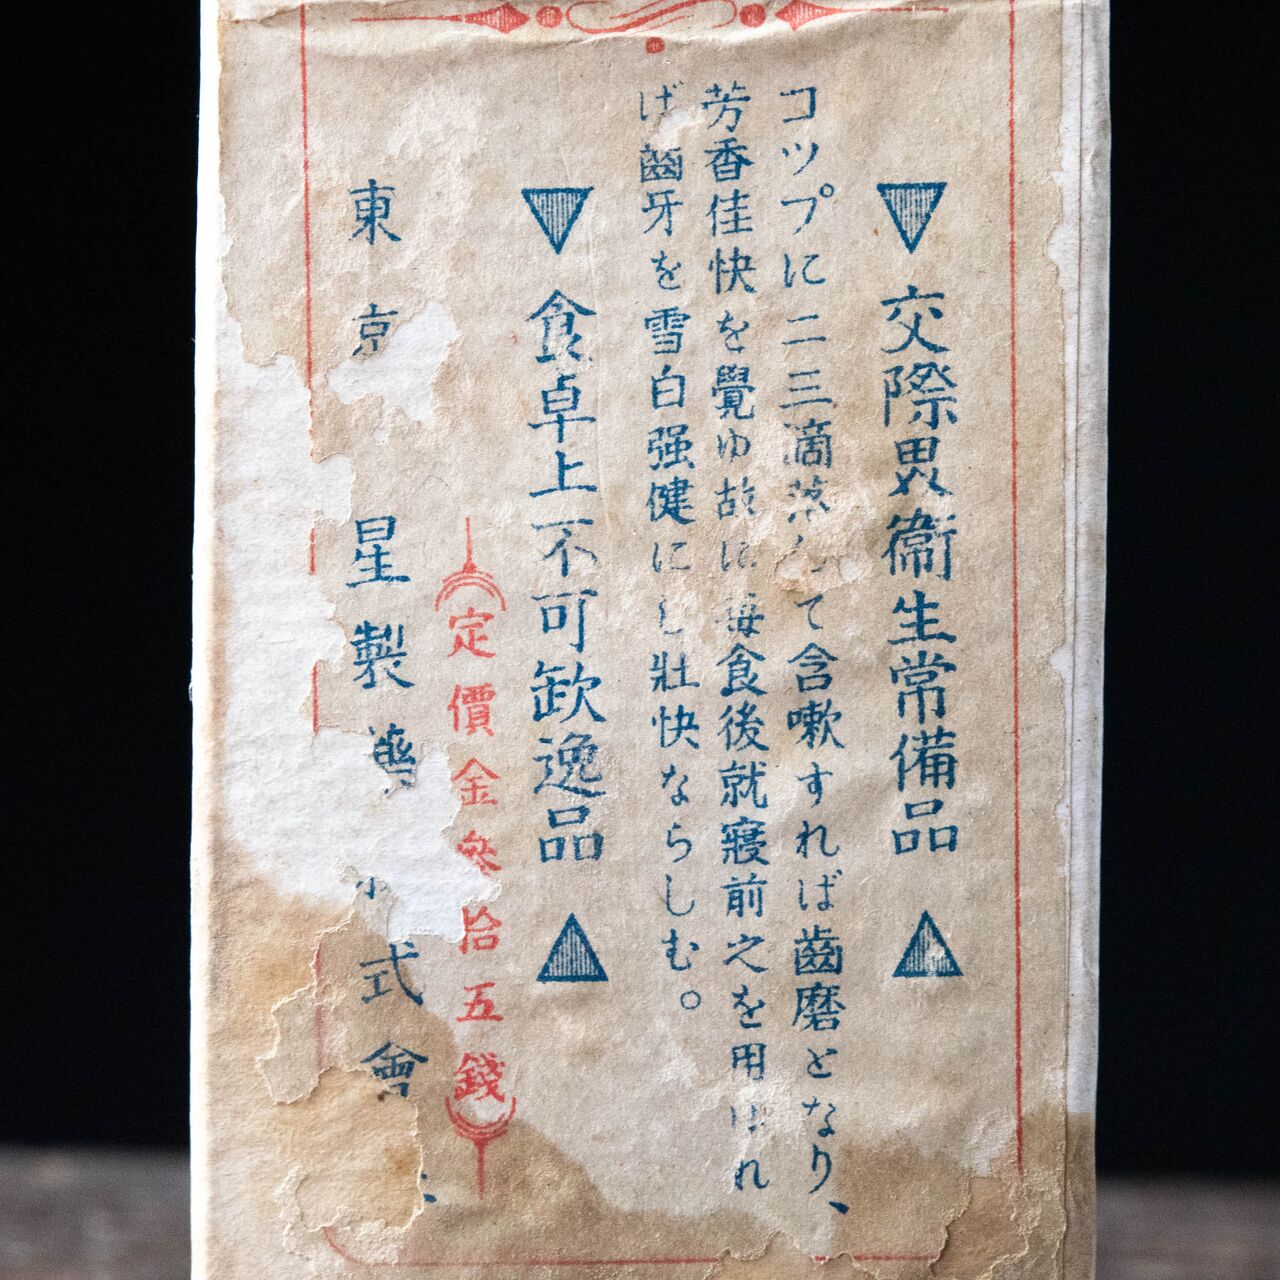 ▼交際界衞生常備品▲
コツプに二三滴落して含嗽すれば齒磨となり、
芳香佳快を覺ゆ故に毎食後就寢前之を用ゆれ
ば齒牙を雪白强健にし壯快ならしむ。
▼食卓上不可缺逸品▲
定價金參拾五錢
東京 星製藥株式會